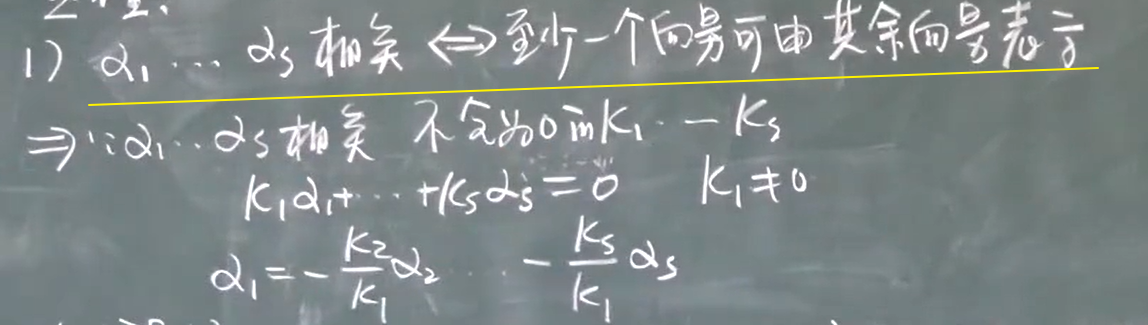 1) α₁ … αs 相关 ⟺ 至少一个向量可由其余向量表示
⇒ ∵ α₁ … αs 相关 不全为0的 K₁ … Ks
K₁α₁+ … +Ksαs = 0 K₁ ≠ 0
α₁ = -K₂/K₁ α₂ … -Ks/K₁ αs